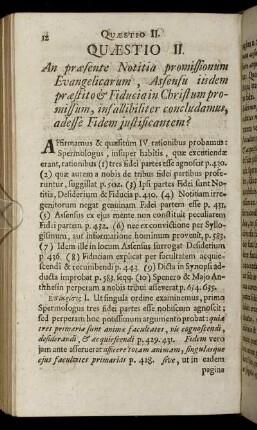 12 QUÆSTIO II.
QUÆSTIO II.
An præsente Notitia promissionum
Evangelicarum, Assensu iisdem
præstito & Fiducia in Christum pro-
missum, infallibiliter concludamus,
adesse Fidem justificantem?
AFfirmamus & quæsitum IV. rationibus probamus:
Spermologus, insuper habitis, quæ excutiendæ
erant, rationibus, (1) tres fidei partes esse agnoscit p.430.
(2) quæ autem a nobis de tribus fidei partibus profe-
runtur, suggillat p. 502. (3) Ipsi partes Fidei sunt No-
titia, Desiderium & Fiducia p. 430. (4) Notitiam irre-
genitorum negat genuinam Fidei partem esse p. 431.
(5) Assensus ex ejus mente non constituit peculiarem
Fidei partem p. 432. (6) nec ex convictione per Syllo-
gismum, aut informatione hominum provenit, p. 583.
(7) Idem ille in locum Assensus surrogat Desiderium
p. 436. (8) Fiduciam explicat per facultatem acquie-
scendi & recumbendi p. 443. (9) Dicta in Synopsi ad-
ducta improbat p. 583. seqq. (10) Spenero & Majo An-
thesin perperam a nobis tribui asseverat p. 634. 635.
I. Ut singula ordine examinemus, primo
Spermologus tres fidei partes esse nobiscum agnoscit;
sed perperam hoc potissimum argumento probat: quia
tres primariæ sunt animæ facultates, vis cognoscendi,
desiderandi, & acquiescendi p. 429. 431. Fidem vero
jam ante asseruerat afficere totam animam, singulasque
ejus facultates primarias p. 418. sive, ut in eadem
pagina